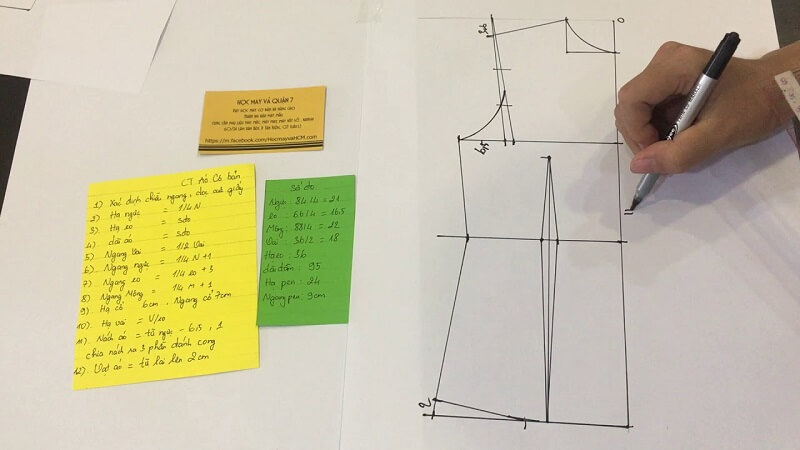 HỌC MAY VÁ QUẬN 7
https://m.facebook.com/HocmayvaHCM.com
CT Áo Cơ bản
1) Xác định chiều ngang, dọc của giấy
2) Hạ ngực = 1/4 N
3) Hạ eo = sđo
4) dài áo = sđo
5) Ngang Vai = 1/2 Vai
6) Ngang ngực = 1/4 N + 1
7) Ngang eo = 1/4 eo + 3
8) Ngang Mông = 1/4 M + 1
9) Hạ cổ 6cm, Ngang cổ 7cm
10). Hạ vai = V/10
11) Nách áo = từ ngực - 6,5, 1
chia nách ra 3 phần đánh cong
12). Vạt áo = từ lai lên 2cm
Số đo
Ngực: 84/4 = 21
eo: 66/4 = 16,5
Mông: 88/4 = 22
Vai: 36/2 = 18
Hạ eo: 36
dài đầm: 95
Hạ pen: 24
Ngang pen: 9cm
2